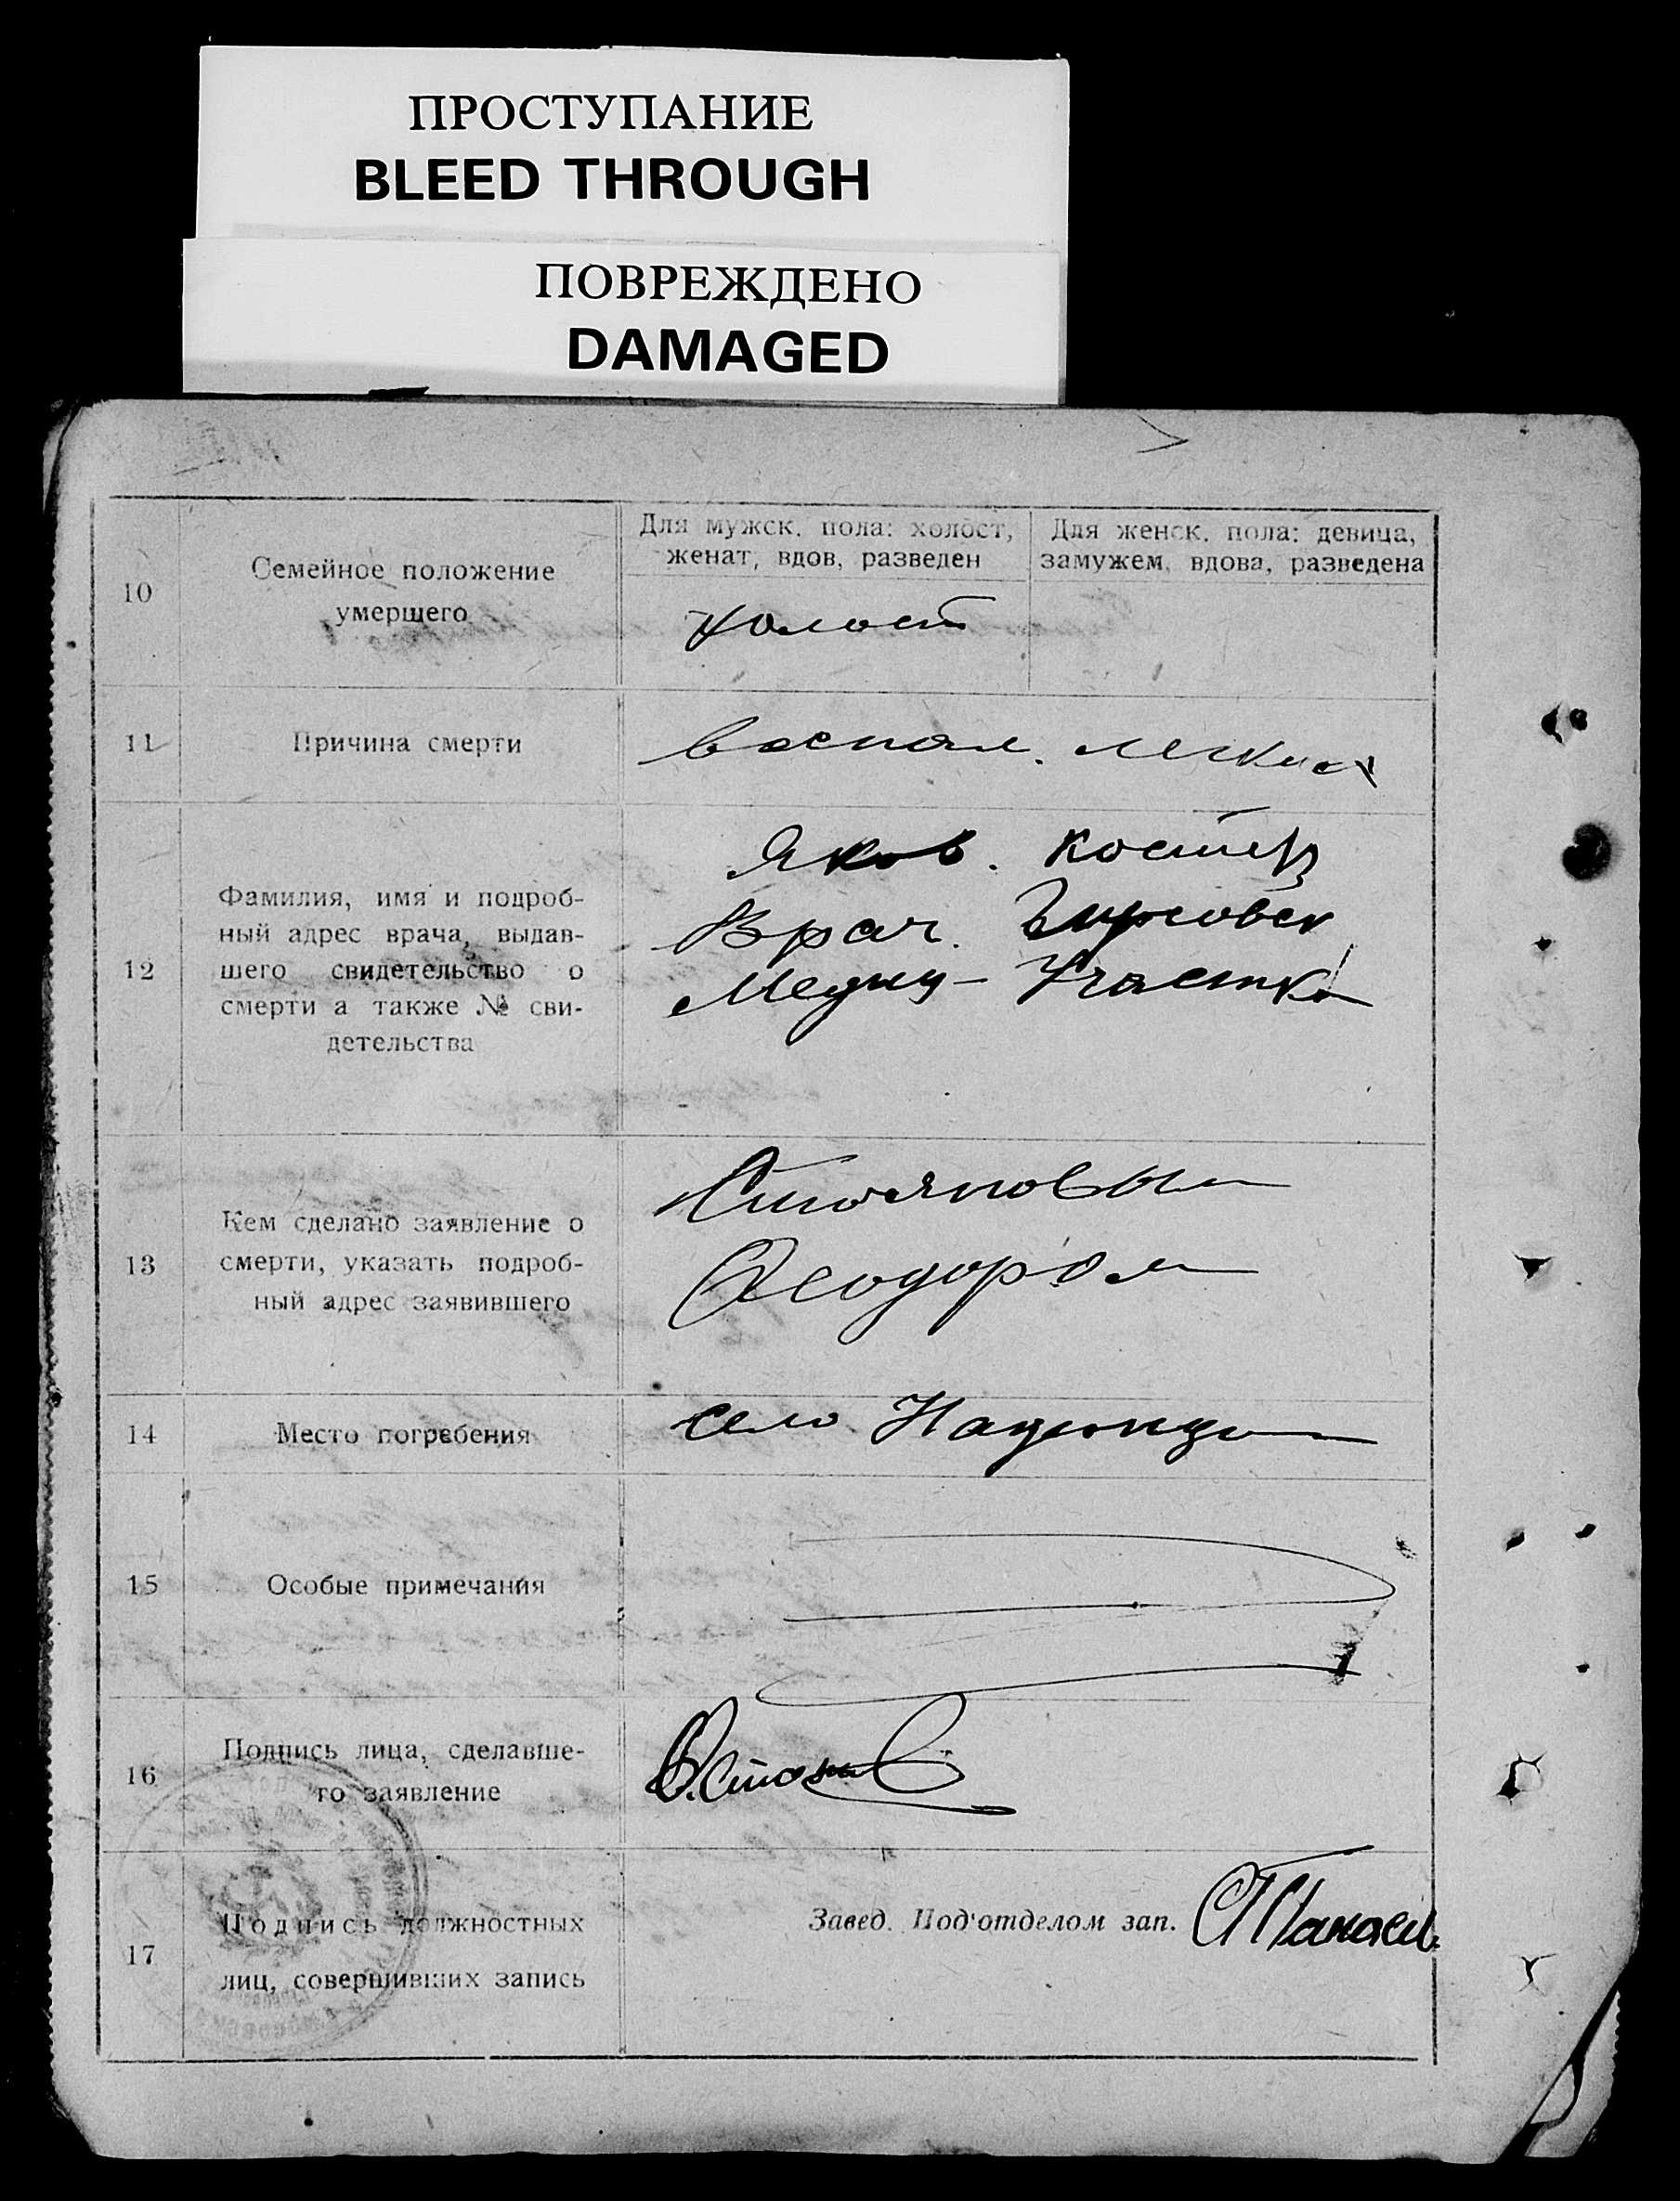 ПРОСТУПАНИЕ
BLEED THROUGH
ПОВРЕЖДЕНО
DAMAGED
10
Семейное положение
умершего
Для мужск. пола: холост,
женат, вдов, разведен
Для женск. пола: девица,
замужем, вдова, разведена
холост
11
Причина смерти
воспал. легких
12
Фамилия, имя и подроб-
ный адрес врача, выдав-
шего свидетельство о
смерти а также № сви-
детельства
Яков.
Врач.
Медиц- Участка
13
Кем сделано заявление о
смерти, указать подроб-
ный адрес заявившего
Стояновым
Феодором
14
Место погребения
село
15
Особые примечания
16
Подпись лица, сделавше-
го заявление
17
Подпись должностных
лиц, совершивших запись
Завед. Под'отделом зап.